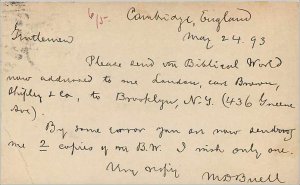 Cambridge, England
6/5.
May 24. 93
Gentlemen
Please send the Biblical World
now addressed to me London, care Brown,
Shipley & Co, to Brooklyn, N.Y. (436 Greene
Ave).
By some error you are now sending
me 2 copies of the B.W. I wish only one.
Very resp'y
M D Buell